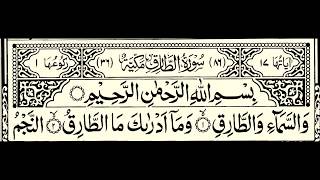 اٰیَاتُهَا ١٧ (٨٦) سُوْرَةُ الطَّارِقِ مَكِّيَّةٌ (٣٦) رُكُوْعُهَا ١
بِسْمِ اللّٰهِ الرَّحْمٰنِ الرَّحِيْمِ
وَالسَّمَآءِ وَالطَّارِقِ ۙ ١ وَمَآ اَدْرٰىكَ مَا الطَّارِقُ ۙ ٢ النَّجْمُ